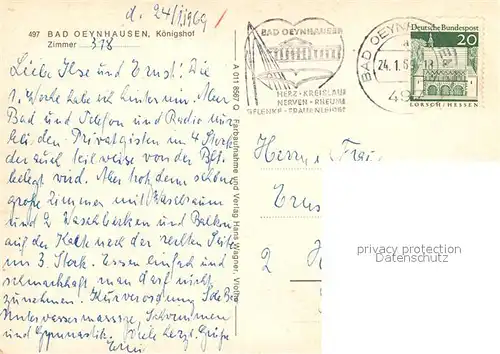 d. 24/1 1969
497 BAD OEYNHAUSEN, Königshof
Zimmer 318
Liebe Ilse und Ernst! Die
1. Woche habe ich hinter mir. Aber
Bad und Telefon und Radio nur
bei den Privatgästen im 4 Stock
der auch teilweise von der Bf
belegt wird. Aber trotzdem schön
große Zimmer mit
und 2 Waschbecken und Balkon
auf der
im 3. Stock. Essen einfach und
schmackhaft, man darf nicht
zunehmen. Kurversorgung
Unterwassermassage, Schwimmen
und Gymnastik. Viele herzl. Grüße
Erni
A 011 8587 C Farbaufnahme und Verlag Hans Wagner, Vlotho
BAD OEYNHAUSEN
HERZ · KREISLAUF
NERVEN · RHEUMA
GELENKE · FRAUENLEIDEN
BAD OEYN
24.1.69
497
Deutsche Bundespost
20
LORSCH/HESSEN
Herrn u Frau
Ernst
2 H
privacy protection
Datenschutz